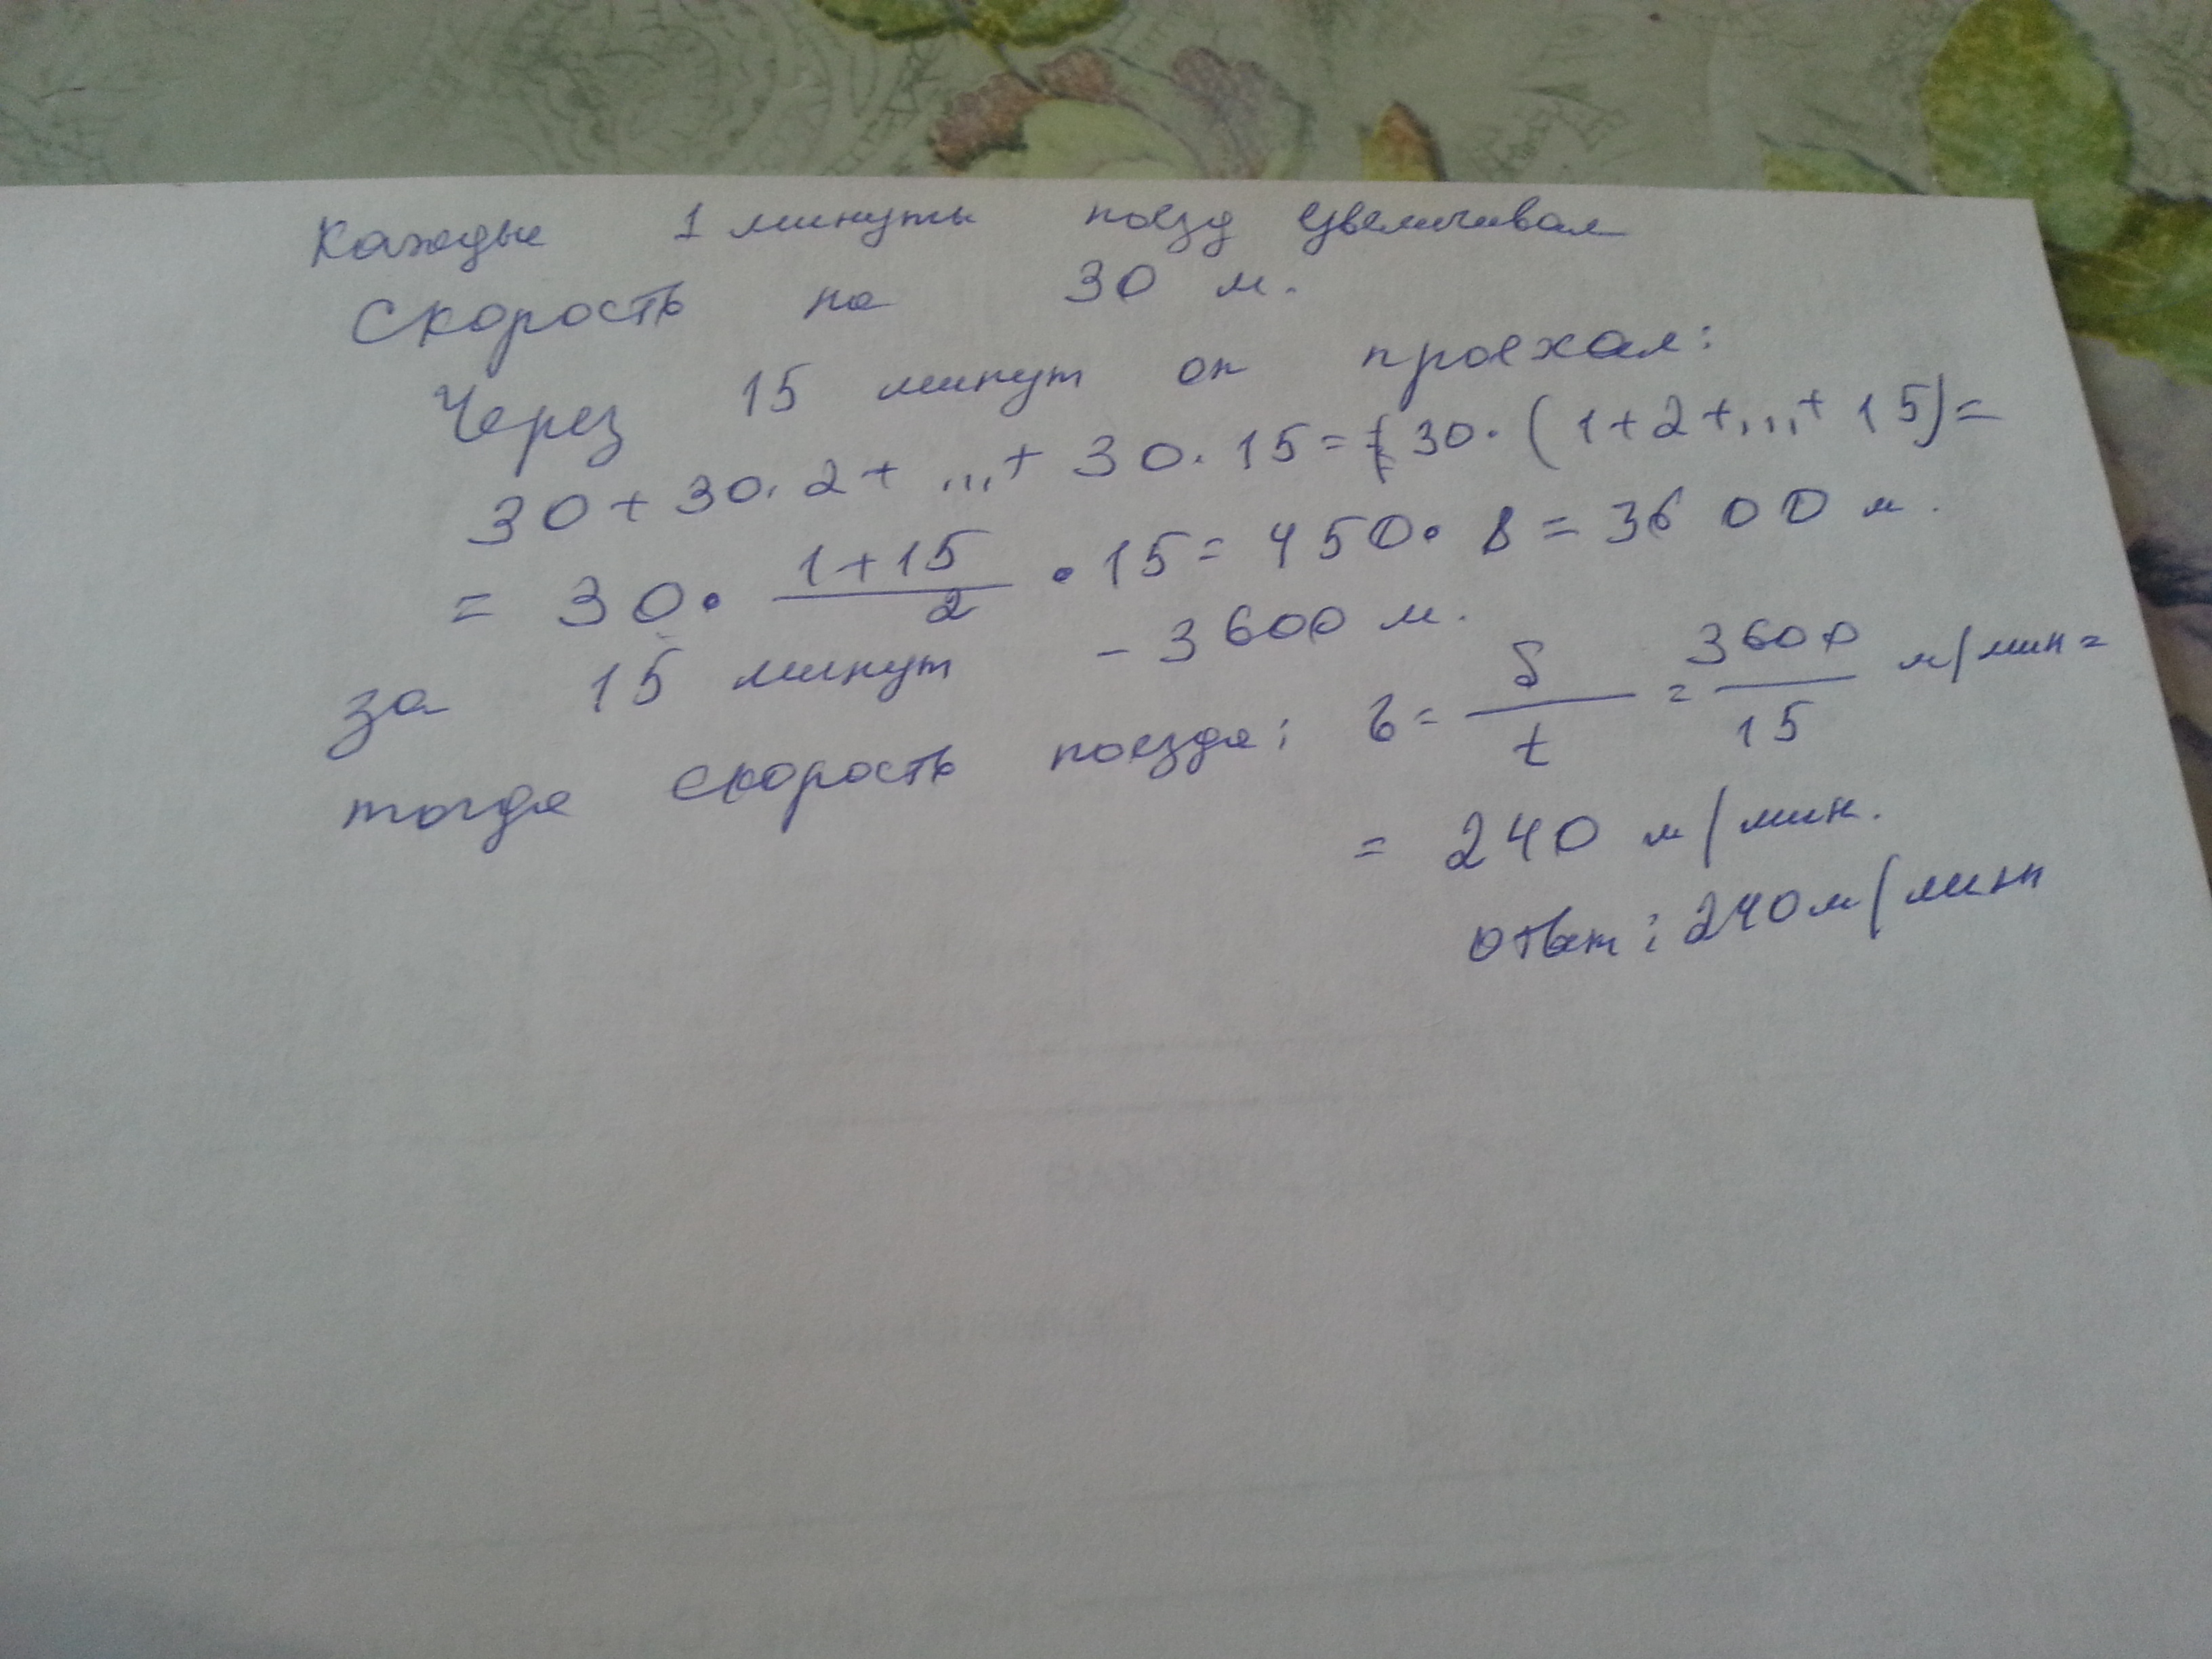 Каждые 1 минуты поезд увеличивал
скорость на 30 м.
Через 15 минут он проехал:
30+30·2+...+30·15=30·(1+2+...+15)=
= 30· \frac{1+15}{2} · 15 = 450· 8 = 3600 м.
за 15 минут - 3600 м.
тогда скорость поезда: v= \frac{S}{t} = \frac{3600}{15} м/мин=
= 240 м/мин.
ответ: 240 м/мин